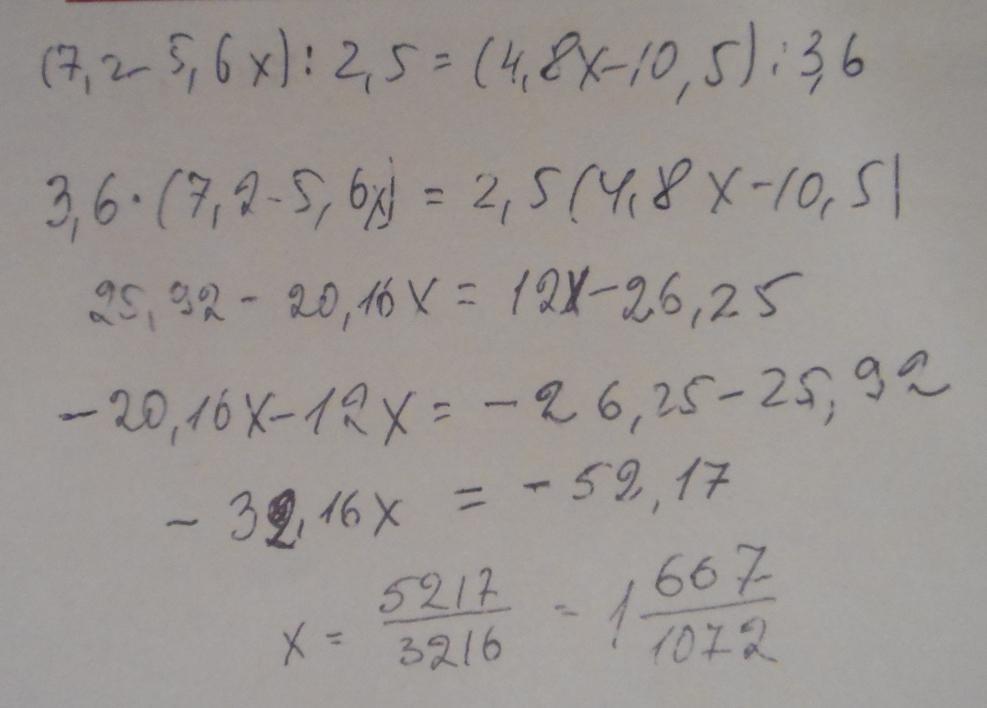 (7,2-5,6x):2,5=(4,8x-10,5):3,6
3,6·(7,2-5,6x)=2,5(4,8x-10,5)
25,92-20,16x=12x-26,25
-20,16x-12x=-26,25-25,92
-32,16x=-52,17
x=5217/3216=1 667/1072